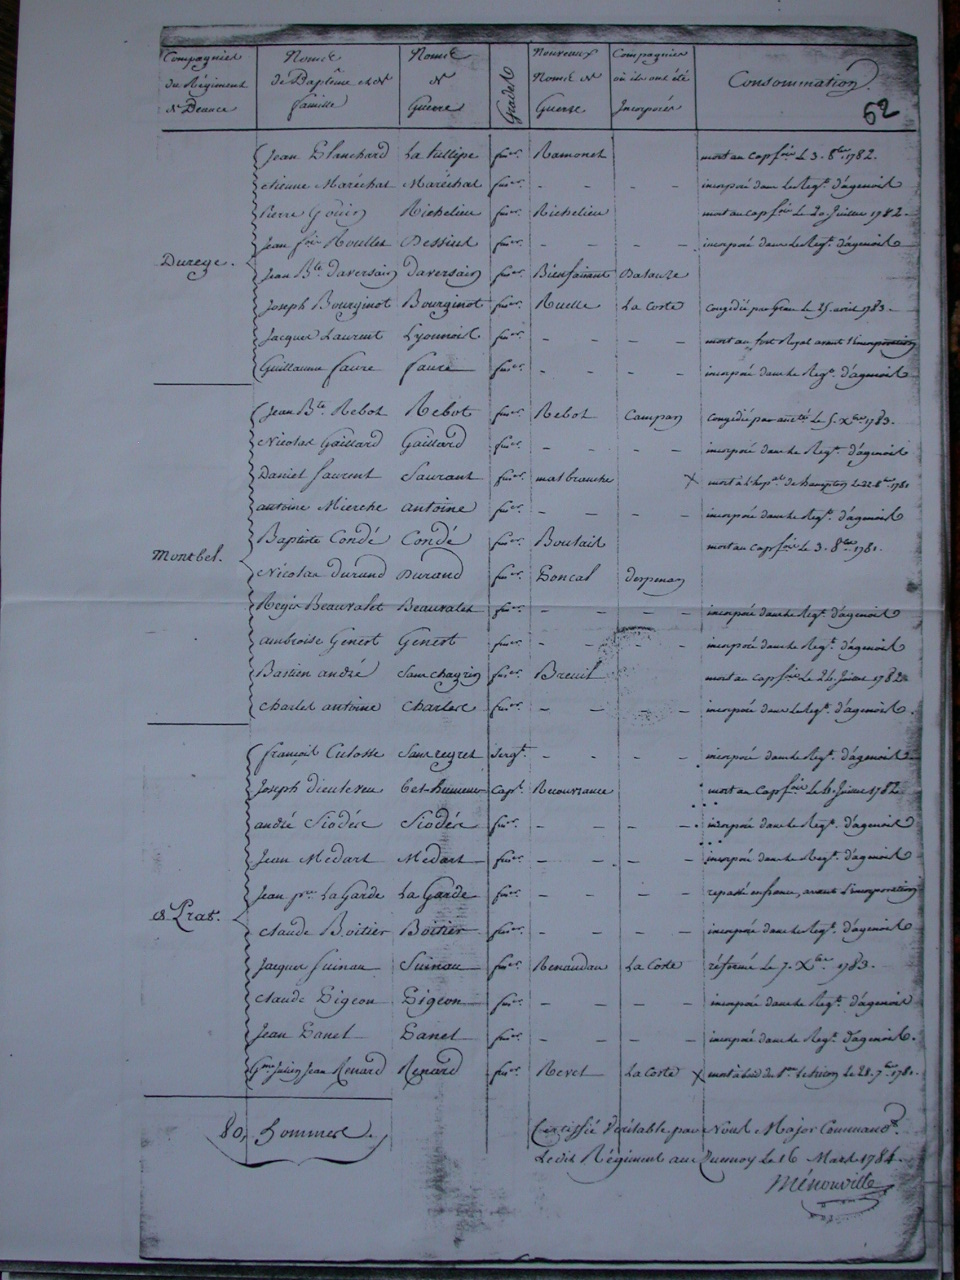 Compagnies du Régiment de Beauce | Noms de Baptême et de famille | Noms de Guerre | Grades | Nouveaux Noms de Guerre | Compagnies où ils ont été Incorporés | Consommation
62
Jean Blanchard La tullipe fuser. Ramonet mort au cap fois Le 3. 8bre. 1782.
etienne Maréchal Maréchal fuser. - - - - incorporé dans le Regt. d'agenois
Pierre Richelieu fuser. Richelieu mort au cap fois Le 20 Juillet 1782.
Jean fois Roullet Dessins fuser. - - - - incorporé dans le Regt. d'agenois
Durege. Jean Bte. Daversain Daversain fuser. Bienfaisant
Joseph Bourginot Bourginot fuser. Ruelle La Coste congédié par Grace le 25. avril 1783.
Jacques Laurent Lyonnois fuser. - - - - mort au fort Royal avant l'incorporation
Guillaume faure faure fuser. - - - - incorporé dans le Regt. d'agenois
Jean Bte. Rebot Rebot fuser. Rebot Campan congédié par Le 5. Xbre 1783.
Nicolas Gaillard Gaillard fuser. - - - - incorporé dans le Regt. d'agenois
Daniel Saurent Saurant fuser. malbranche x mort à l'hopal. de hampton Le 22. 8bre. 1781
antoine Mierche antoine fuser. - - - - incorporé dans le Regt. d'agenois
Baptiste Condé Condé fuser. mort au cap fois Le 3. 8bre. 1781.
Montbel. Nicolas Durand Durand fuser. Poncal Despenan
Regis Beauvalet Beauvalet fuser. - - - - incorporé dans le Regt. d'agenois
ambroise Genest Genest fuser. - - - - incorporé dans le Regt. d'agenois
Bastien andré Sanschagrin fuser. Breuil mort au cap fois Le 24 Juillet 1782
charles antoine Charles fuser. - - - - incorporé dans le Regt. d'agenois.
françois Culosse Sansregret Sergt. - - - - incorporé dans le Regt. d'agenois
Joseph Dieuleveu Bel-humeur Capl. Recouvrance mort au Cap fois Le 4. Juillet 1782
andré Siodés Siodés fuser. - - - - incorporé dans le Regt. d'agenois
Jean Médart Médart fuser. - - - - incorporé dans le Regt. d'agenois
Jean pre. La Garde La Garde fuser. - - - - repassé en france, avant l'incorporation
Prat. claude Boitier Boitier fuser. - - - - incorporé dans le Regt. d'agenois
Jacques Suinau Suinau fuser. Renaudau La Coste réformé Le 7. Xbre. 1783.
claude Pigeon Pigeon fuser. - - - - incorporé dans le Regt. d'agenois
Jean Panel Panel fuser. - - - - incorporé dans le Regt. d'agenois.
Gme. Julien Jean Renard Renard fuser. Revel La Coste x mort à bord du Le 28. 7bre. 1781.
80, hommes.
Certiffié Véritable par Nous Major Commandt.
Ledit Régiment au Le 16 Mars 1784.
Ménouville